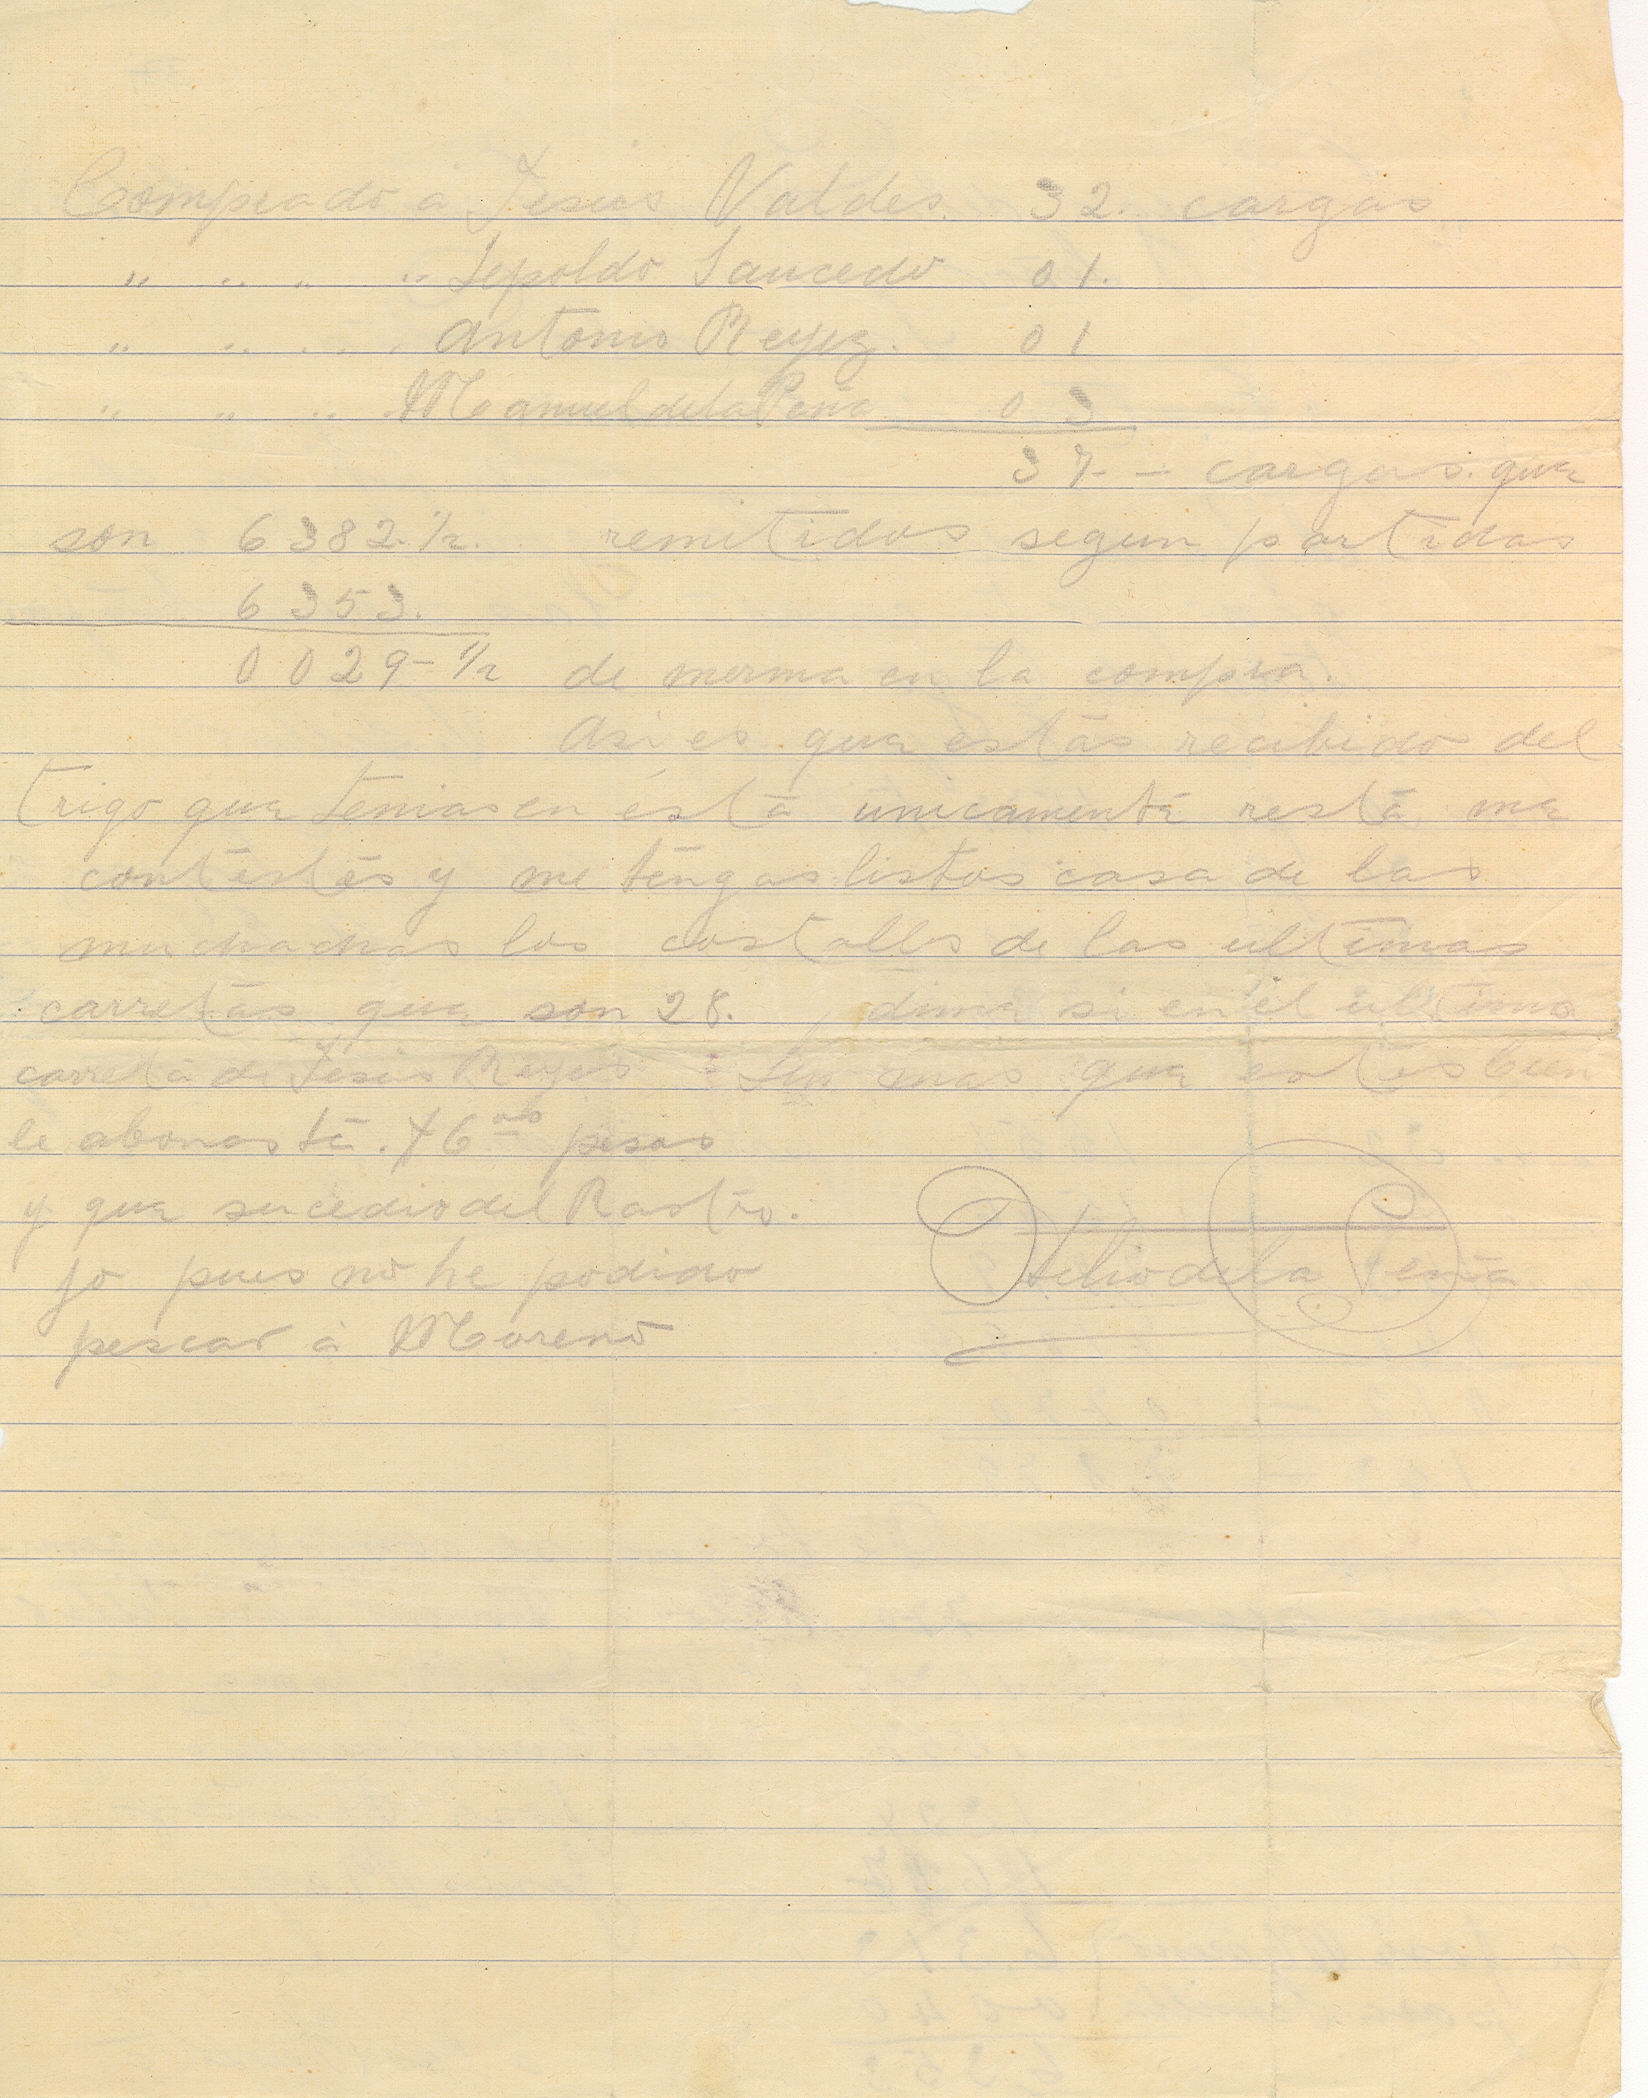 Comprado á Jesus Valdes. 32. cargas
" " " " Lepoldo Saucedo 01.
" " " " Antonio Reyez. 01
" " " " Manuel de la Peña 03
37 - cargas. que
son 6382.½. remitidos segun partidas
6353.
0029-½ de merma en la compra.
Asi es que estás recibido del
trigo que tenias en ésta unicamente resta me
contestes y me tengas listos casa de las
muchachas los costalls de las ultimas
carretas que son 28. dime si en el ultimo
carreta de Jesus Reyes Sin mas que estes bien
le abonaste. 46 00 pesos
y que sucedio del Rastro.
jo pues no he podido
pescar á Moreno
Otilio de la Peña